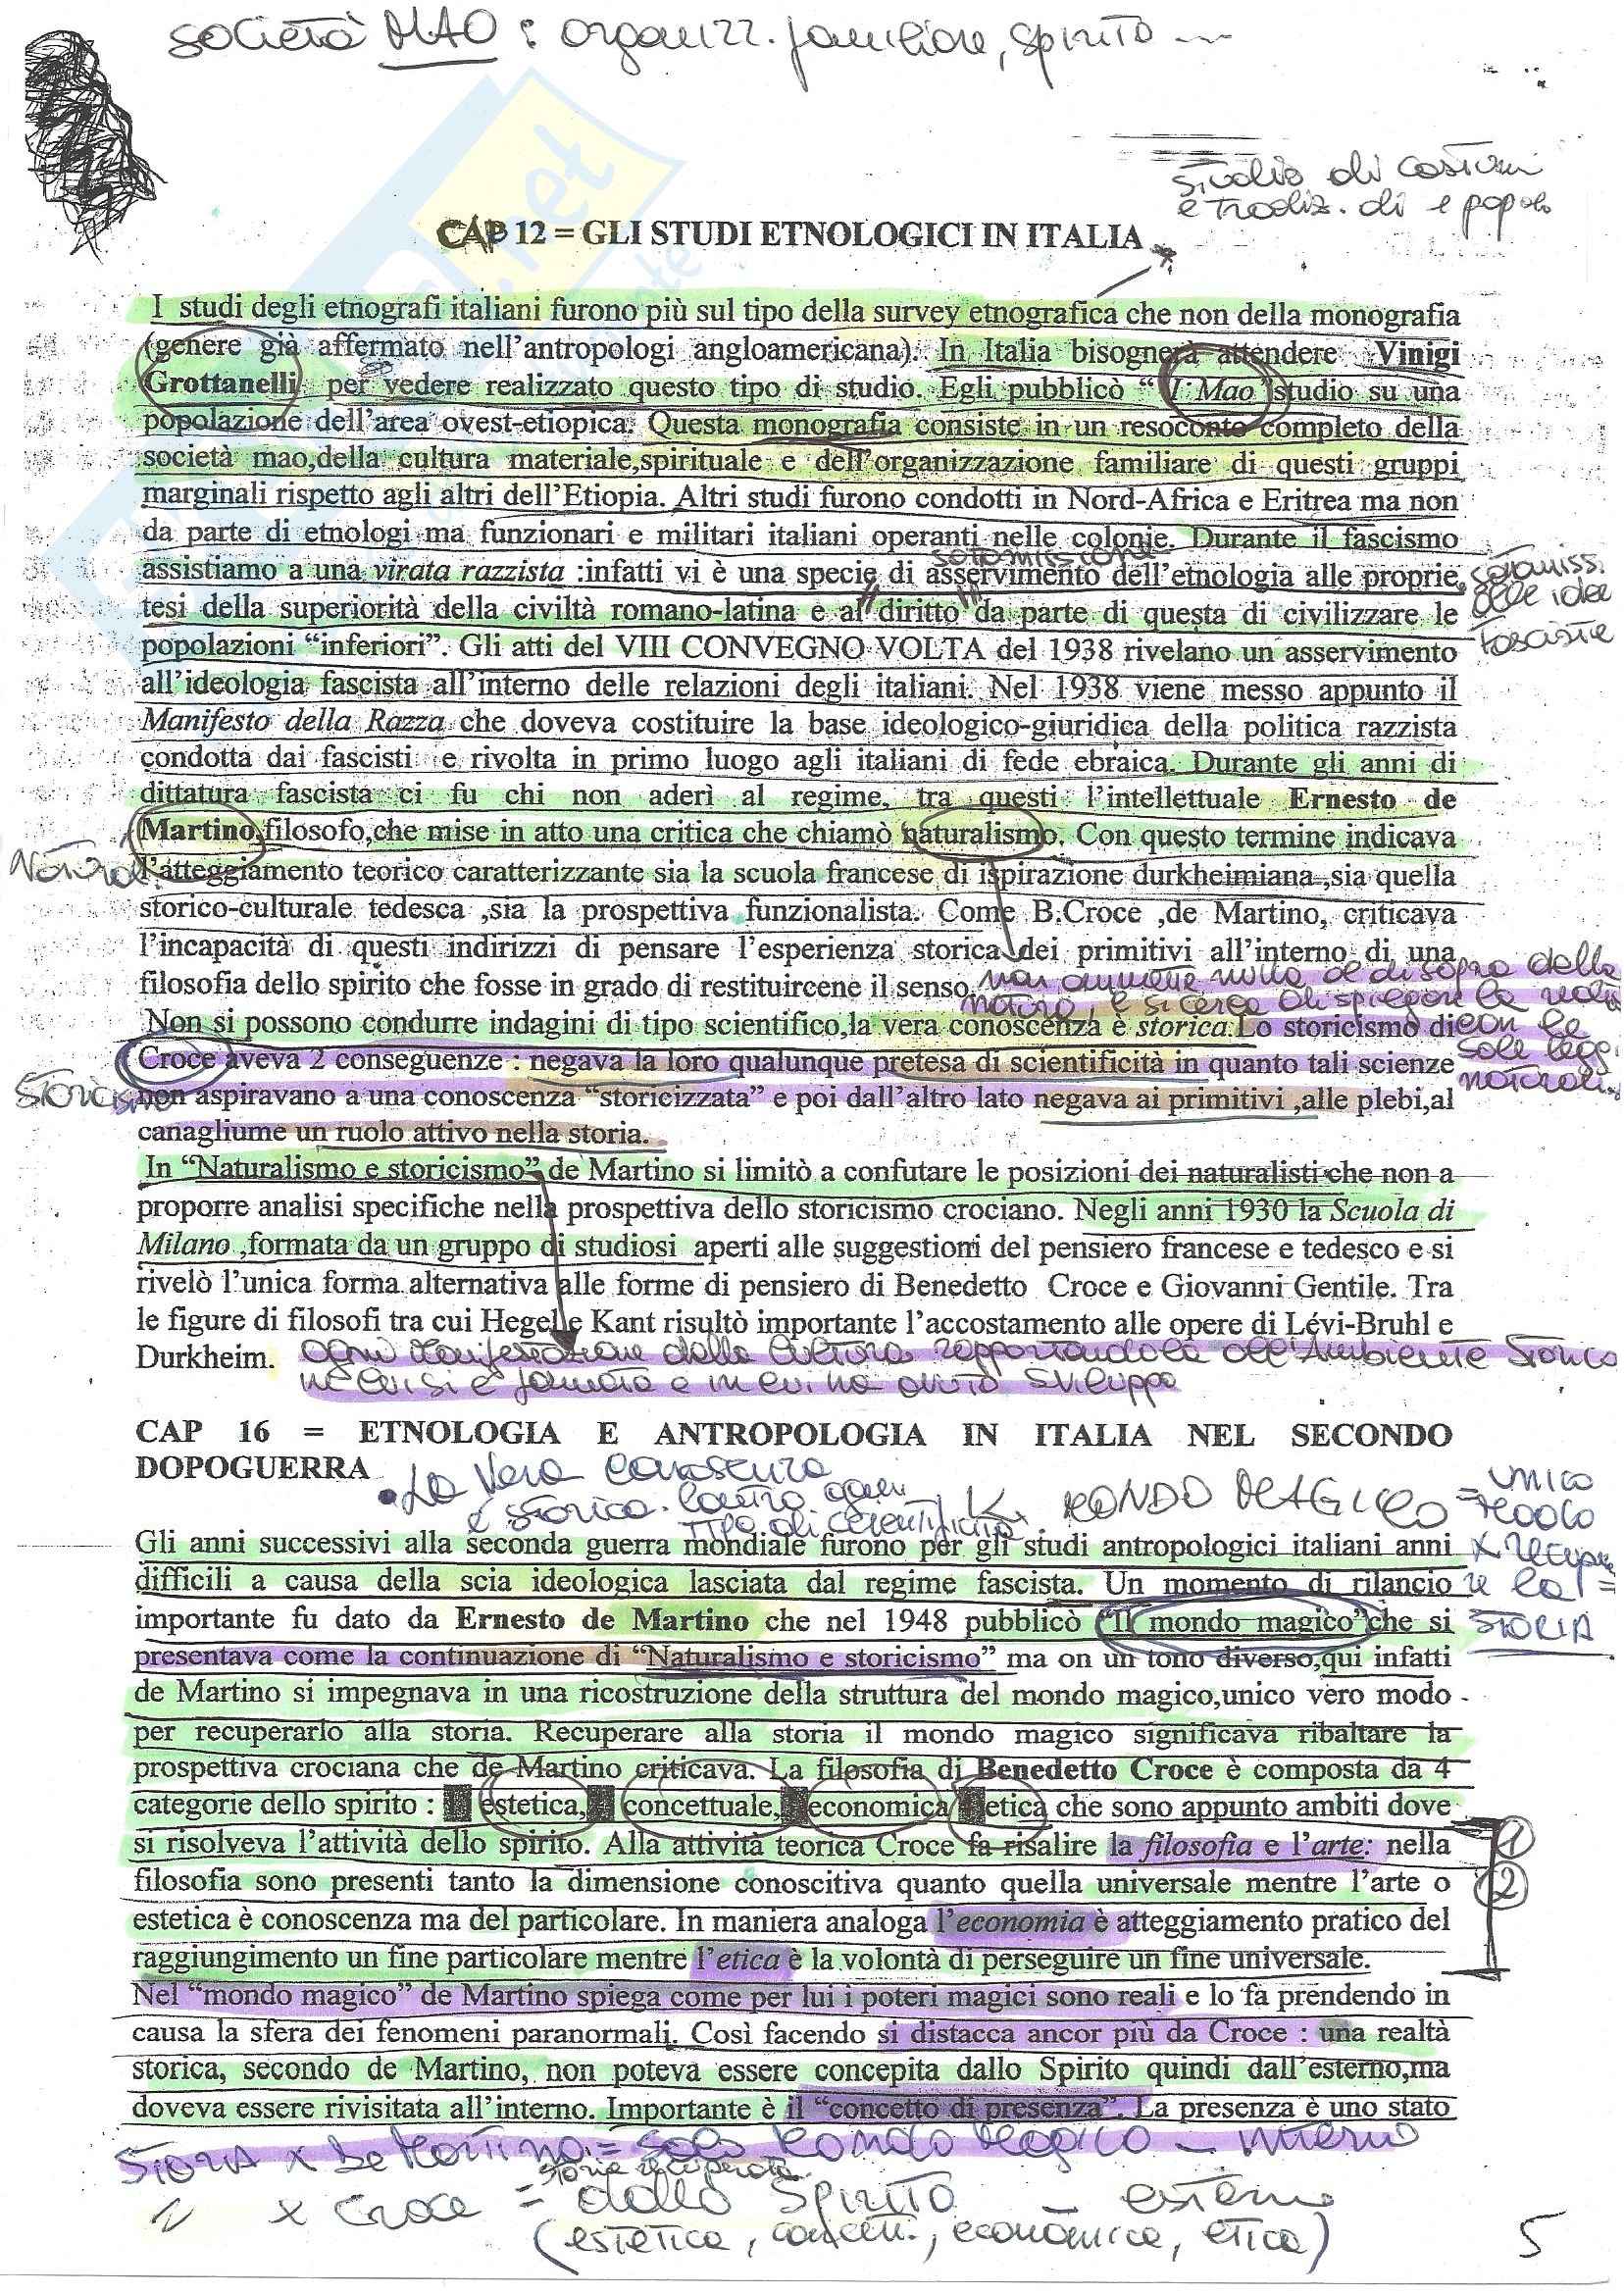 società MAO : organizz. familiare, spirito ...
studio di costumi
e tradiz. di 1 popolo
CAP 12 = GLI STUDI ETNOLOGICI IN ITALIA *
I studi degli etnografi italiani furono più sul tipo della survey etnografica che non della monografia
(genere già affermato nell'antropologi angloamericana). In Italia bisognerà attendere Vinigi
Grottanelli per vedere realizzato questo tipo di studio. Egli pubblicò " I Mao "studio su una
popolazione dell'area ovest-etiopica. Questa monografia consiste in un resoconto completo della
società mao,della cultura materiale,spirituale e dell'organizzazione familiare di questi gruppi
marginali rispetto agli altri dell'Etiopia. Altri studi furono condotti in Nord-Africa e Eritrea ma non
da parte di etnologi ma funzionari e militari italiani operanti nelle colonie. Durante il fascismo
sottomissione
assistiamo a una virata razzista :infatti vi è una specie di asservimento dell'etnologia alle proprie
tesi della superiorità della civiltà romano-latina e al "diritto" da parte di questa di civilizzare le
popolazioni "inferiori". Gli atti del VIII CONVEGNO VOLTA del 1938 rivelano un asservimento
sottomiss.
alle idee
fasciste
all'ideologia fascista all'interno delle relazioni degli italiani. Nel 1938 viene messo appunto il
Manifesto della Razza che doveva costituire la base ideologico-giuridica della politica razzista
condotta dai fascisti e rivolta in primo luogo agli italiani di fede ebraica. Durante gli anni di
dittatura fascista ci fu chi non aderì al regime, tra questi l'intellettuale Ernesto de
Martino,filosofo,che mise in atto una critica che chiamò naturalismo. Con questo termine indicava
Natural.
l'atteggiamento teorico caratterizzante sia la scuola francese di ispirazione durkheimiana ,sia quella
storico-culturale tedesca ,sia la prospettiva funzionalista. Come B.Croce ,de Martino, criticava
l'incapacità di questi indirizzi di pensare l'esperienza storica dei primitivi all'interno di una
filosofia dello spirito che fosse in grado di restituircene il senso.
non ammette nulla al di sopra della
natura, e si cerca di spiegare la realtà
con le
sole leggi
naturali
Non si possono condurre indagini di tipo scientifico,la vera conoscenza è storica.Lo storicismo di
Croce aveva 2 conseguenze : negava la loro qualunque pretesa di scientificità in quanto tali scienze
Storicismo
non aspiravano a una conoscenza "storicizzata" e poi dall'altro lato negava ai primitivi ,alle plebi,al
canagliume un ruolo attivo nella storia.
In "Naturalismo e storicismo" de Martino si limitò a confutare le posizioni dei naturalisti che non a
proporre analisi specifiche nella prospettiva dello storicismo crociano. Negli anni 1930 la Scuola di
Milano ,formata da un gruppo di studiosi aperti alle suggestioni del pensiero francese e tedesco e si
rivelò l'unica forma alternativa alle forme di pensiero di Benedetto Croce e Giovanni Gentile. Tra
le figure di filosofi tra cui Hegel e Kant risultò importante l'accostamento alle opere di Lévi-Bruhl e
Durkheim.
ogni manifestazione della cultura rapportandola all'Ambiente storico
in cui si è formata e in cui ha avuto sviluppo
CAP 16 = ETNOLOGIA E ANTROPOLOGIA IN ITALIA NEL SECONDO
DOPOGUERRA
• La vera conoscenza
è storica. contro ogni
tipo di scientificità
MONDO MAGICO = unico
modo
x recupera
re la
STORIA
Gli anni successivi alla seconda guerra mondiale furono per gli studi antropologici italiani anni
difficili a causa della scia ideologica lasciata dal regime fascista. Un momento di rilancio
importante fu dato da Ernesto de Martino che nel 1948 pubblicò "Il mondo magico"che si
presentava come la continuazione di "Naturalismo e storicismo" ma on un tono diverso,qui infatti
de Martino si impegnava in una ricostruzione della struttura del mondo magico,unico vero modo
per recuperarlo alla storia. Recuperare alla storia il mondo magico significava ribaltare la
prospettiva crociana che de Martino criticava. La filosofia di Benedetto Croce è composta da 4
categorie dello spirito : estetica, concettuale, economica etica che sono appunto ambiti dove
si risolveva l'attività dello spirito. Alla attività teorica Croce fa risalire la filosofia e l'arte: nella
1
filosofia sono presenti tanto la dimensione conoscitiva quanto quella universale mentre l'arte o
2
estetica è conoscenza ma del particolare. In maniera analoga l'economia è atteggiamento pratico del
raggiungimento un fine particolare mentre l'etica è la volontà di perseguire un fine universale.
Nel "mondo magico" de Martino spiega come per lui i poteri magici sono reali e lo fa prendendo in
causa la sfera dei fenomeni paranormali. Così facendo si distacca ancor più da Croce : una realtà
storica, secondo de Martino, non poteva essere concepita dallo Spirito quindi dall'esterno,ma
doveva essere rivisitata all'interno. Importante è il "concetto di presenza". La presenza è uno stato
STORIA x De Martino = solo Mondo Magico - interno
storia recuperata
x Croce = dallo Spirito - esterno
(estetica, concett., economica, etica)
5